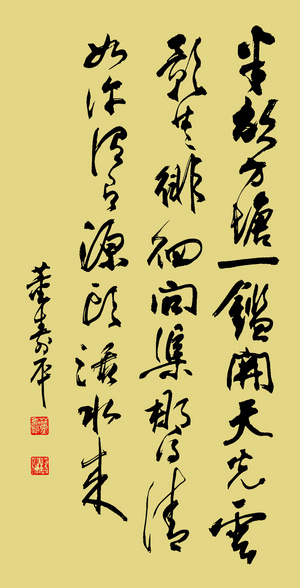 半畝方塘一鑑開天光雲
影共徘徊問渠那得清
如許謂有源頭活水來
董壽平